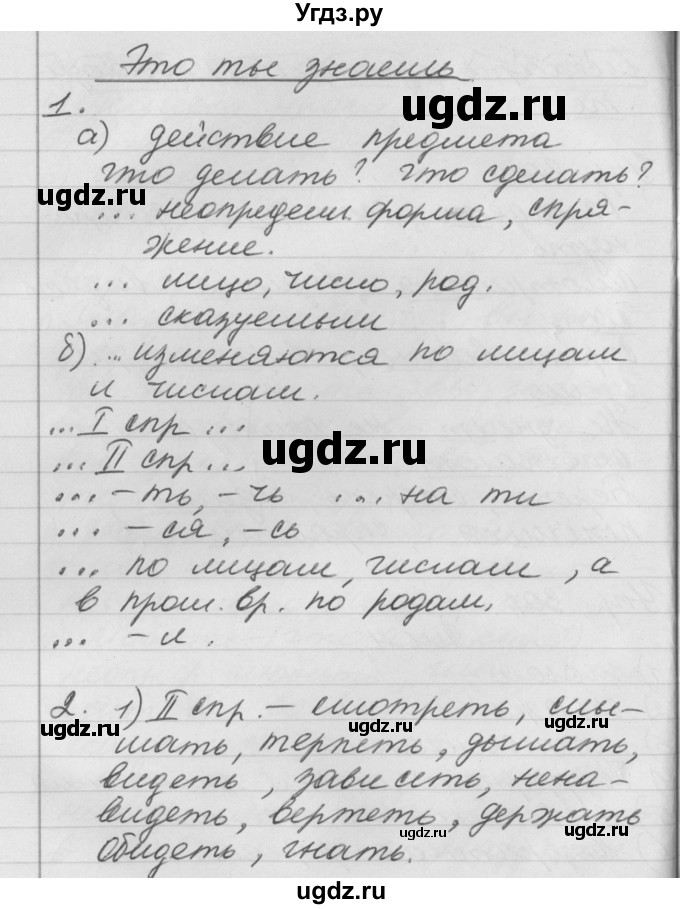 Угдз.ру
Это ты знаешь
ugdz.ru
1.
а) действие предмета
что делать? что сделать?
ugdz.ru
... неопределен. форма, спря-
жение.
... лицо, число, род.
... сказуемым
б) ... изменяются по лицам
и числам.
... I спр ...
ugdz.ru
... II спр ...
... -ть, -чь ... на ти
... -ся, -сь
... по лицам, числам, а
в прош. вр. по родам.
... -л.
2. 1) II спр. - смотреть, слы-
ugdz.ru ugdz.ru ugdz.ru
шать, терпеть, дышать,
видеть, зависеть, нена-
видеть, вертеть, держать
ugdz.ru ugdz.ru
обидеть, гнать.
ugdz.ru